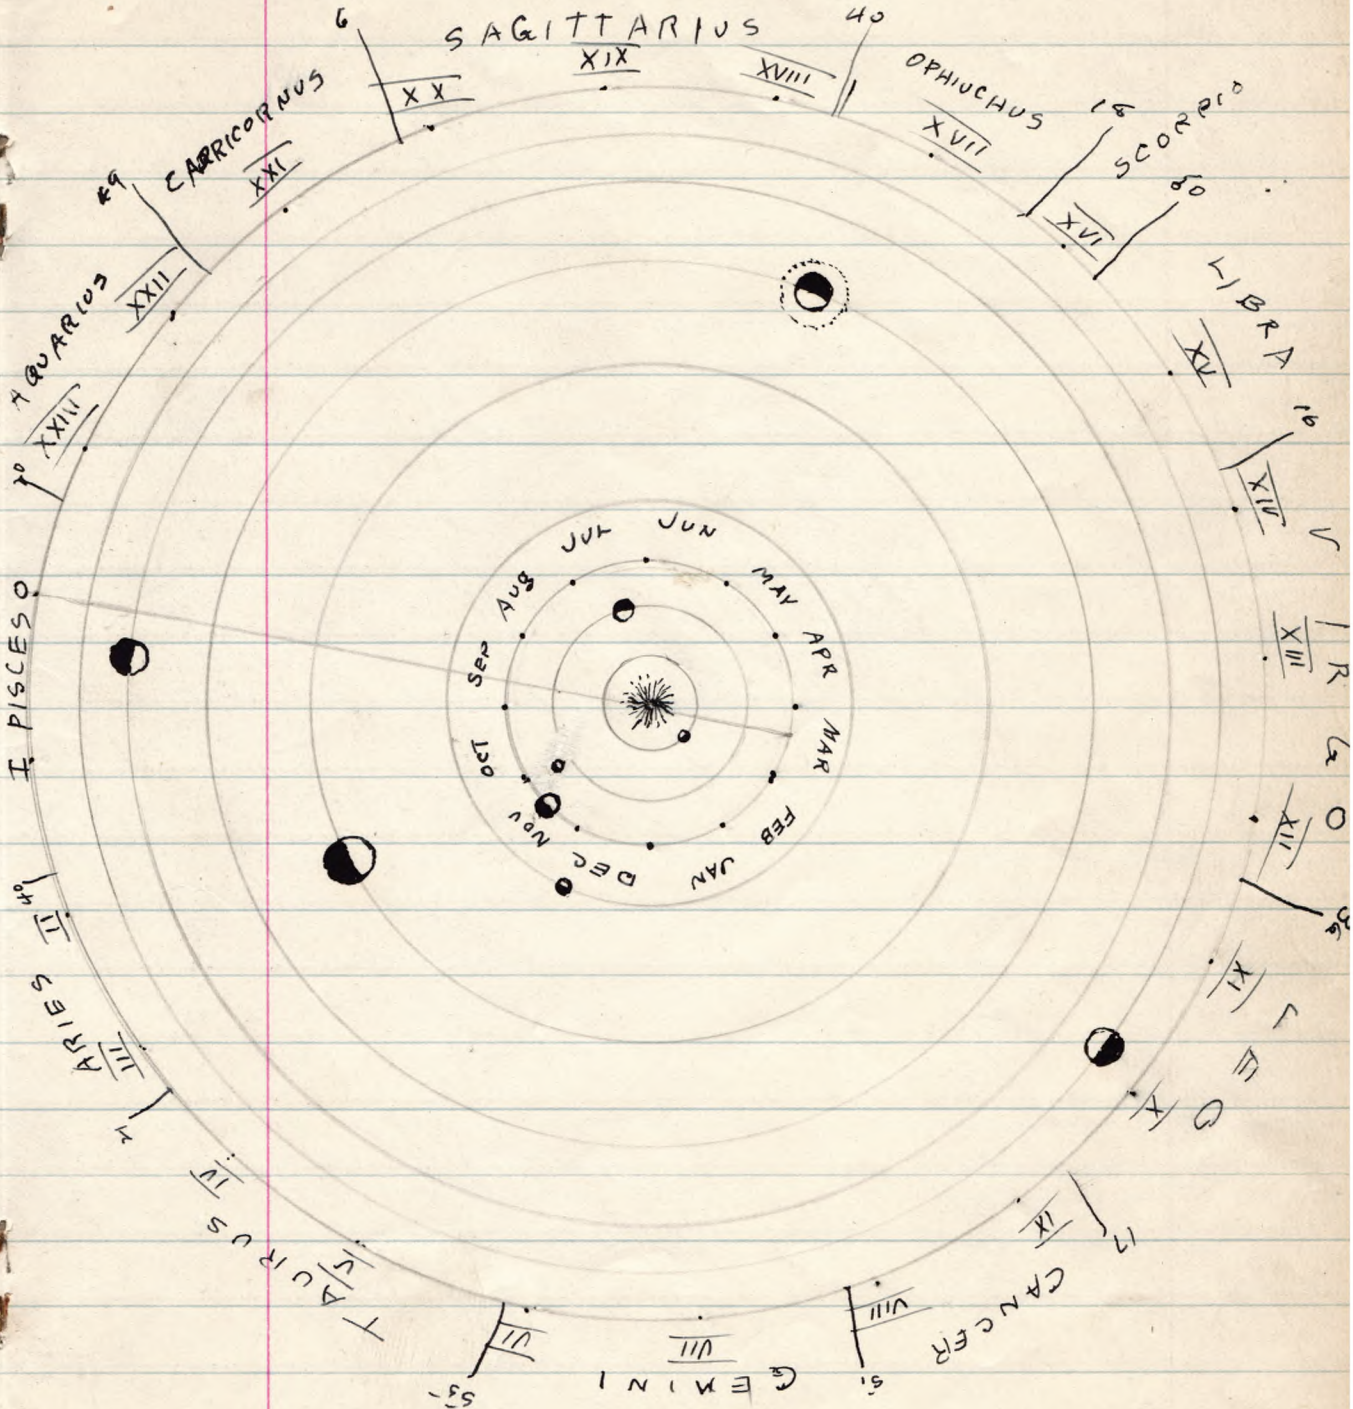 6
SAGITTARIUS
40
XX
XIX
XVIII
OPHIUCHUS
XVII
18
SCORPIO
50
XVI
LIBRA
XV
16
XIV
VIRGO
XIII
XII
36
XI
LEO
X
17
IX
CANCER
VIII
51
GEMINI
VII
VI
55
TAURUS
V
IV
ARIES
III
II
40
PISCES
I
O
XXIII
AQUARIUS
XXII
49
CAPRICORNUS
XXI
JUN
MAY
APR
MAR
FEB
JAN
DEC
NOV
OCT
SEP
AUG
JUL